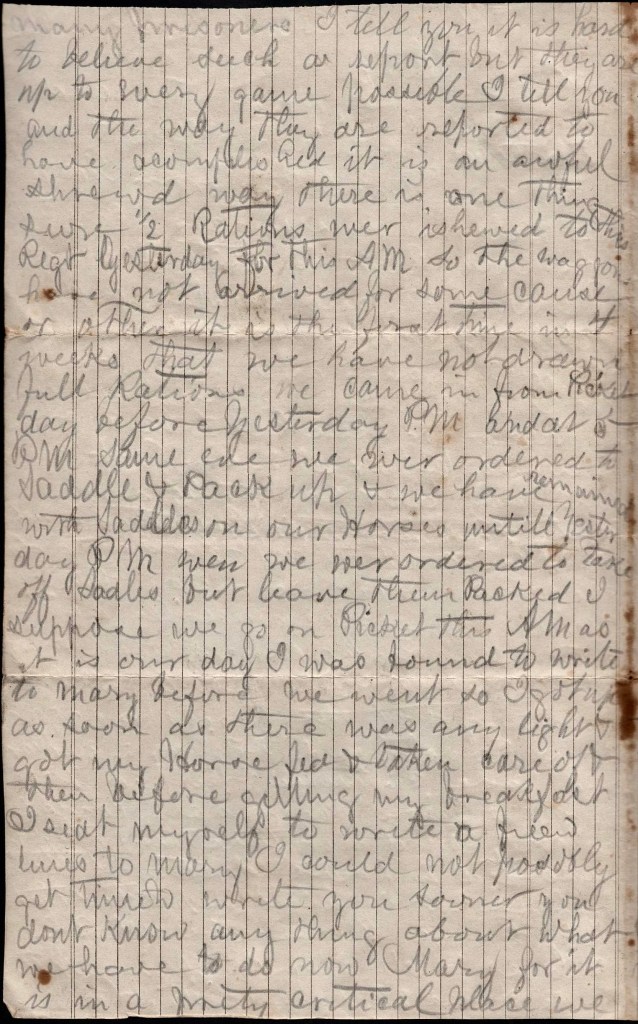 many prisoners I tell you it is hard
to believe such a report but they are
up to every game possible I tell you
and the way they are reported to
have acomplished it is an awful
shrewd way there is one thing
sure 1/2 Rations wer ishewed to this
Regt Yesturday for this AM so the waggons
have not arrived for some cause
or other it is the first time in 4
weeks that we have not drawn
full Rations we came in from Picket
day before Yesterday P.M. and at 5
P.M same eve we wer ordered to
Saddle & Pack up & we have remained
with Saddles on our Horses untill Yestur
day P.M wen we wer ordered to take
off Sadles but leave them Packed I
suppose we go on Picket this AM as
it is our day I was bound to write
to mary before we went so I got up
as soon as there was any light &
got my Horse fed & taken care of &
then before getting my breakfast
I seat myself to write a few
lines to mary I could not possibly
get time to write you sooner you
dont know any thing about what
we have to do now Mary for it
is in a prety critical place we